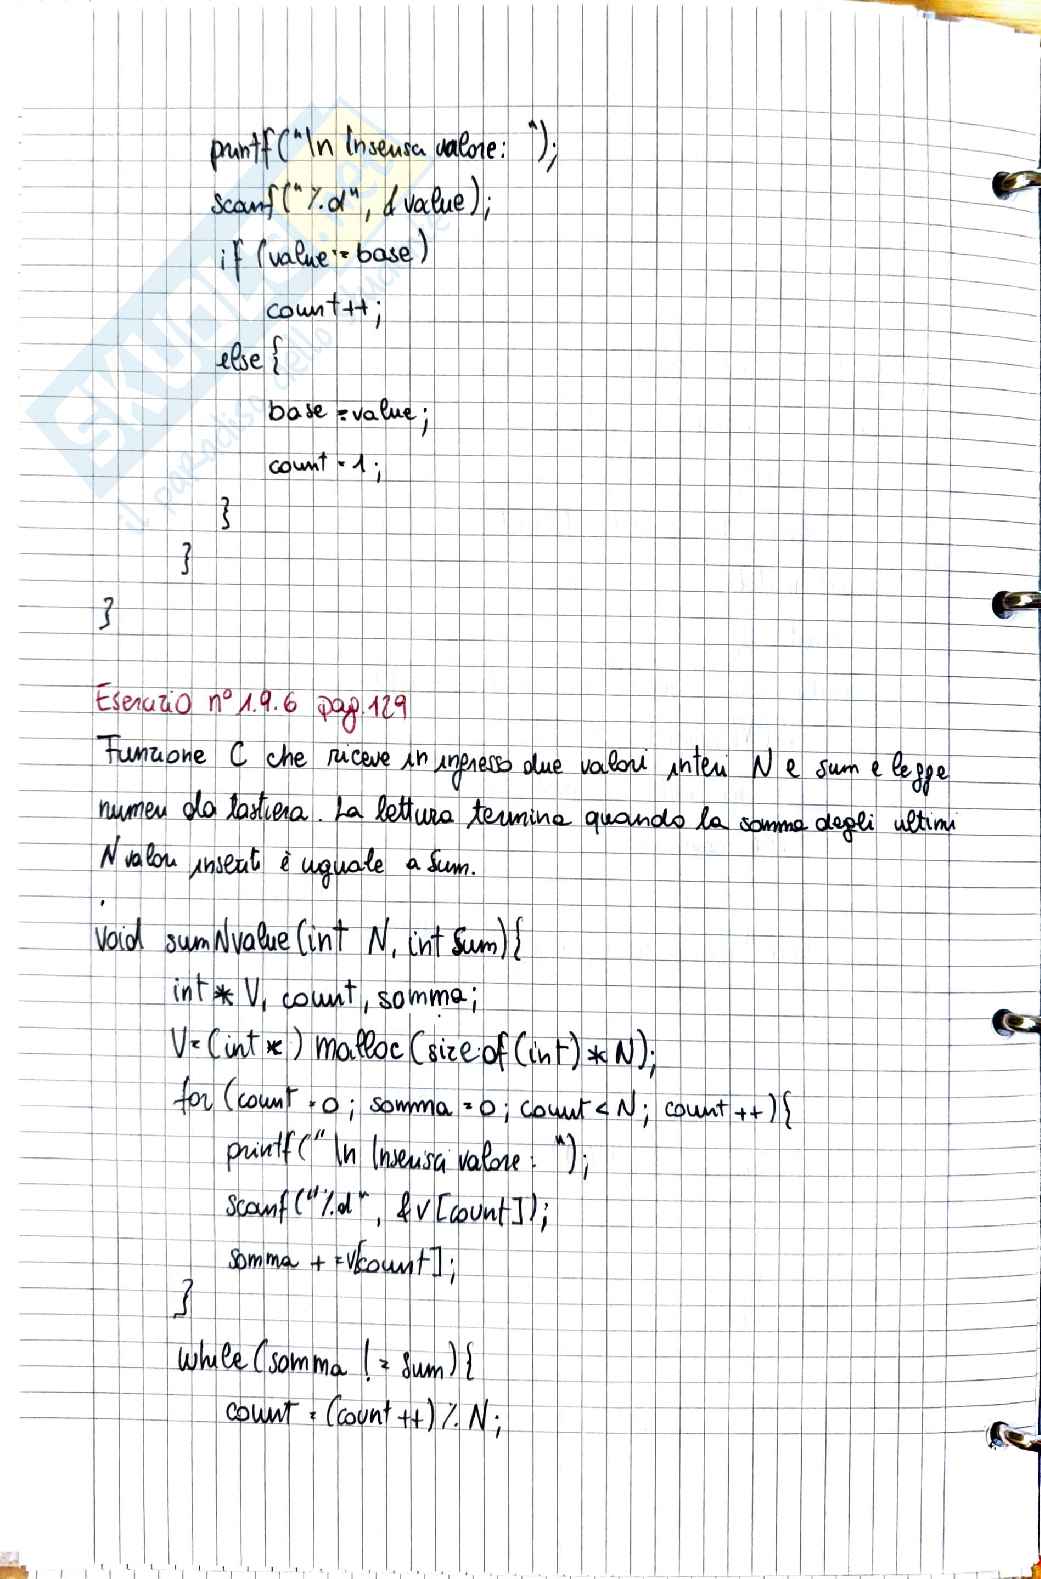 printf("\n Inserisci valore: ");
scanf("%d", &value);
if (value == base)
count++;
else {
base = value;
count = 1;
}
}
}
Esercizio n° 1.9.6 pag. 129
Funzione C che riceve in ingresso due valori interi N e sum e legge
numeri da tastiera. La lettura termina quando la somma degli ultimi
N valori inseriti è uguale a sum.
void sumNvalue(int N, int sum){
int * V, count, somma;
V = (int *) malloc (size of (int) * N);
for (count = 0; somma = 0; count < N; count ++){
printf("\n Inserisci valore: ");
scanf("%d", &V[count]);
somma += V[count];
}
while (somma != sum){
count = (count ++) % N;
SKUOLA.net
il paradiso dello studente